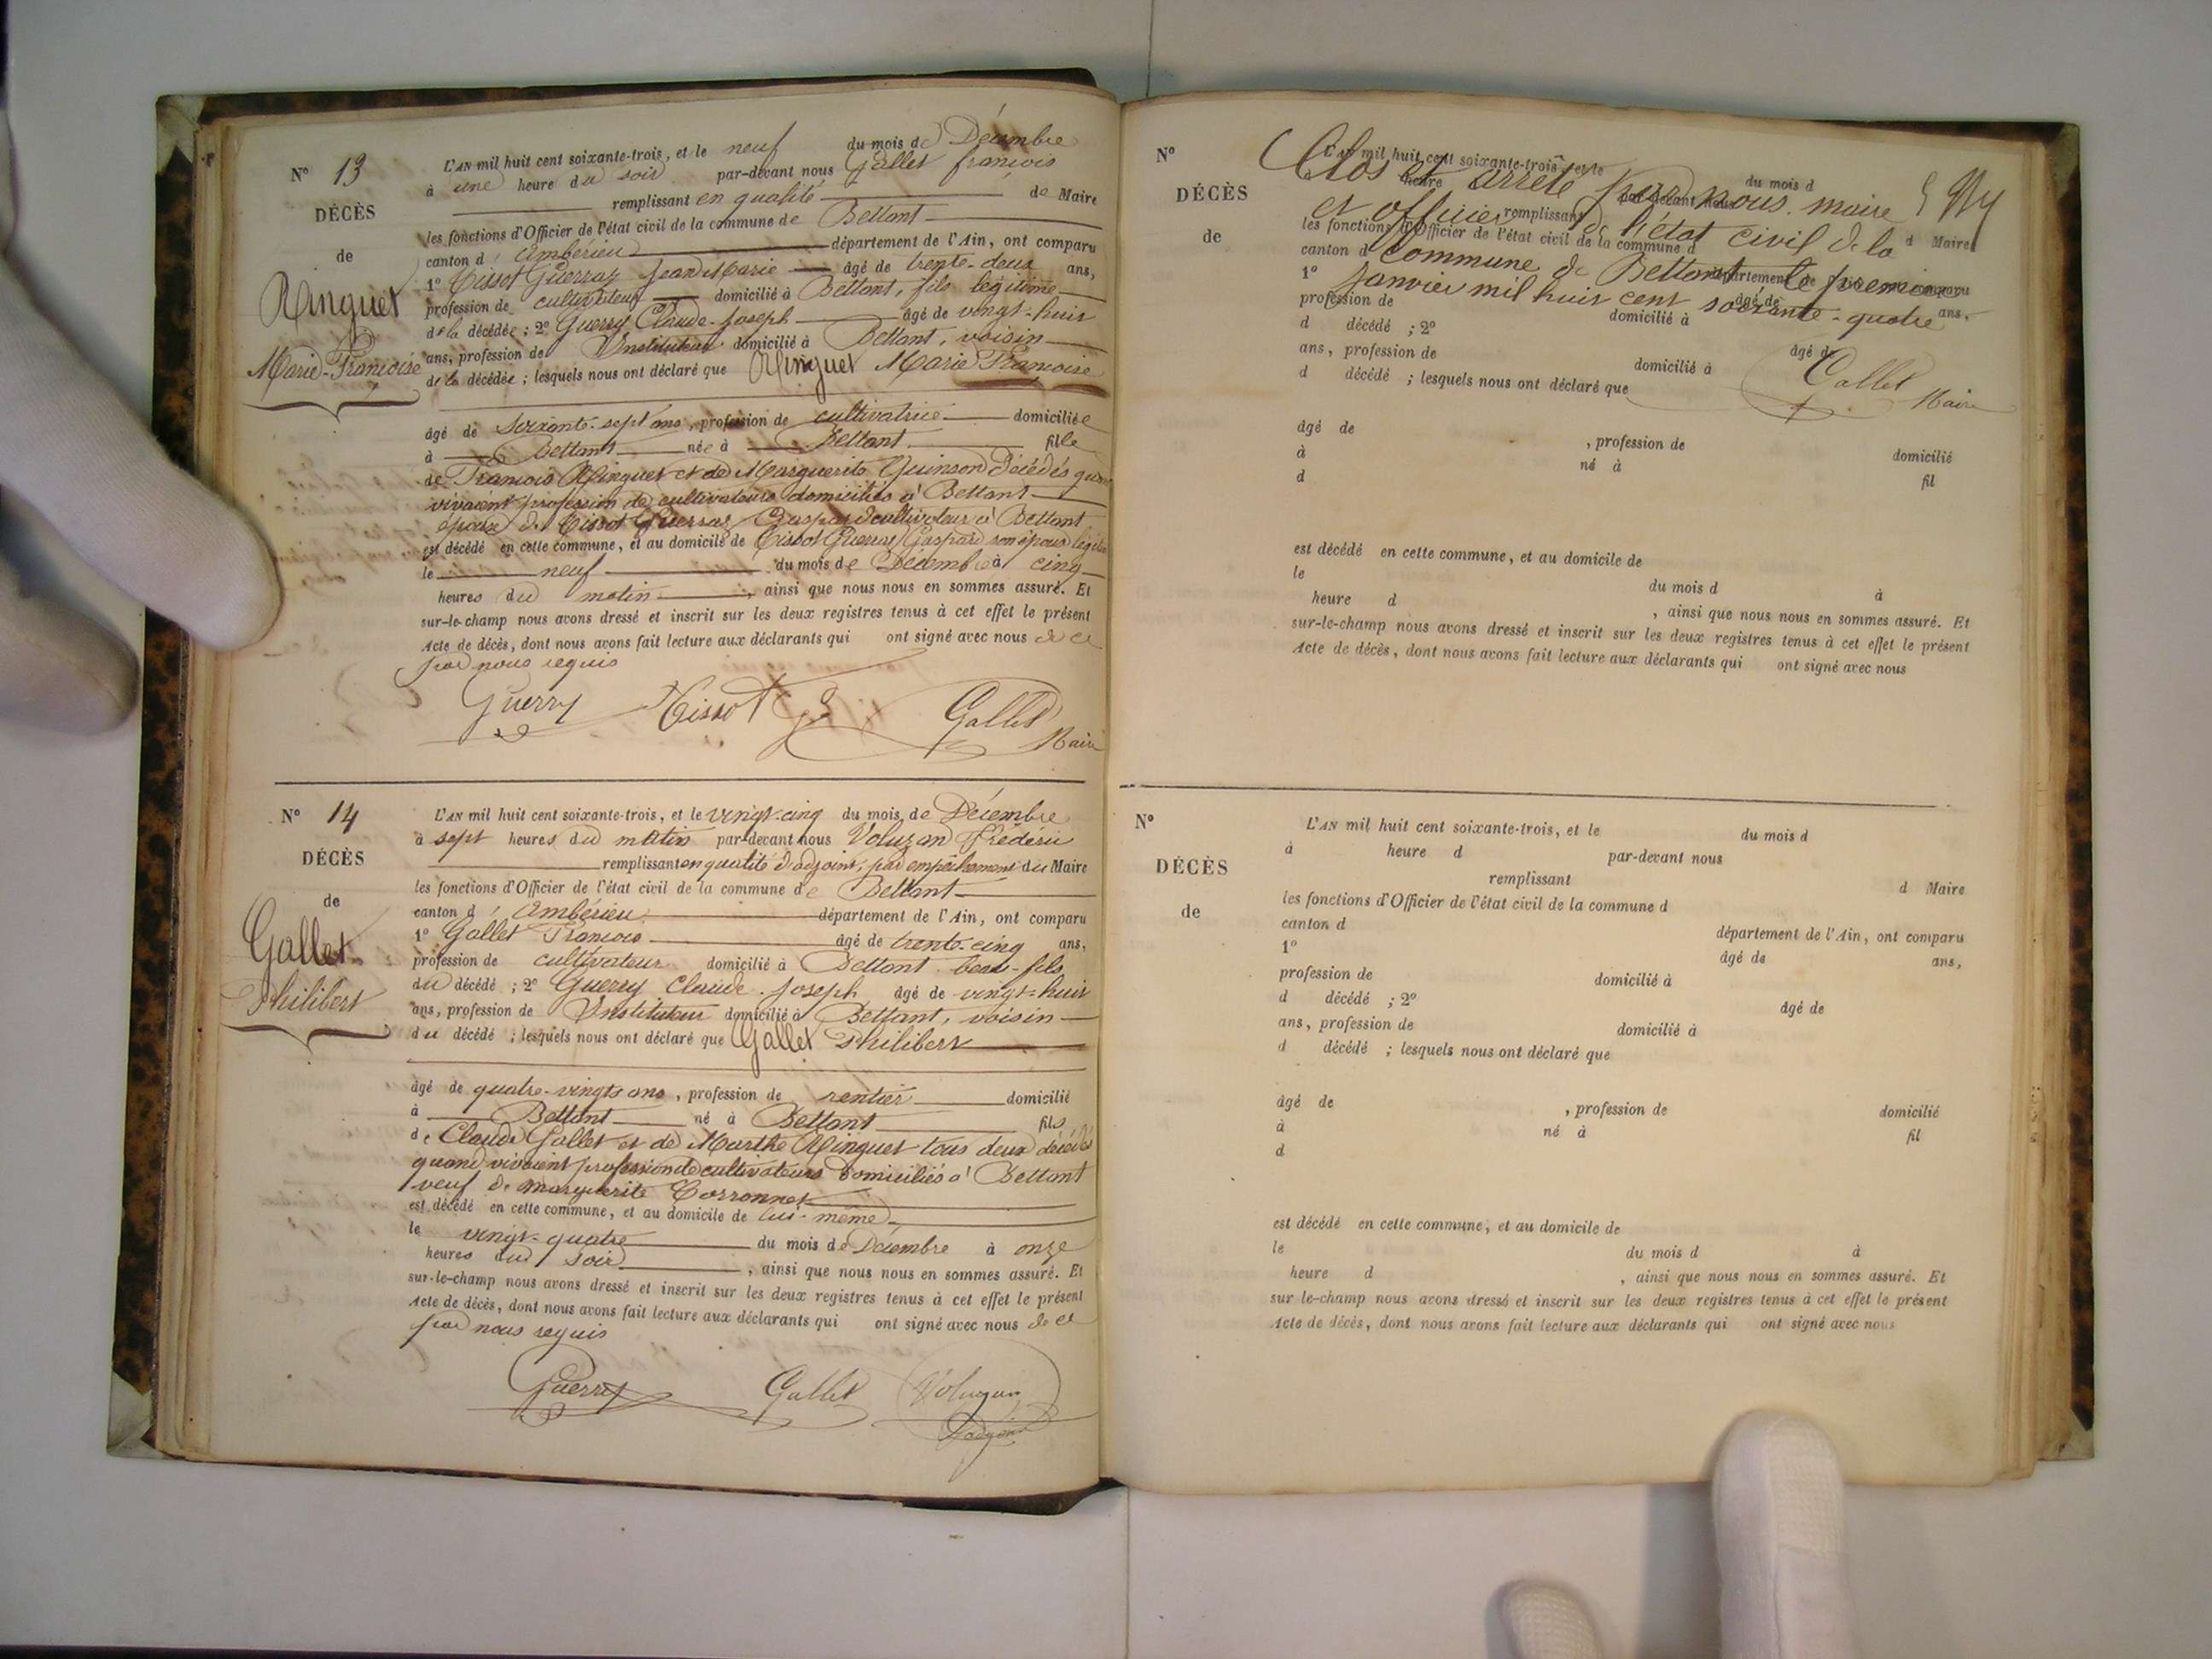 N° 13
DÉCÈS
de
Ringuet
Marie-Françoise
L'AN mil huit cent soixante-trois, et le neuf du mois de Décembre
à une heure du soir par-devant nous Gallet françois
remplissant en qualité de Maire
les fonctions d'Officier de l'état civil de la commune de Bettant
canton d'Ambérieu département de l'Ain, ont comparu
1° Tissot Guerraz Jean Marie âgé de trente-deux ans,
profession de cultivateur domicilié à Bettant, fils légitime
de la décédée ; 2° Guerry Claude-Joseph âgé de vingt-huit
ans, profession de Instituteur domicilié à Bettant, voisin
de la décédée ; lesquels nous ont déclaré que Ringuet Marie Françoise
âgé de soixante-sept ans, profession de cultivatrice domiciliée
à Bettant née à Bettant fille
de François Ringuet et de Marguerite Quinson décédés quand
vivaient profession de cultivateurs domiciliés à Bettant
épouse de Tissot Guerraz Gaspard cultivateur à Bettant
est décédé en cette commune, et au domicile de Tissot Guerraz Gaspard son époux
le neuf du mois de Décembre à cinq
heures du matin, ainsi que nous nous en sommes assuré. Et
sur-le-champ nous avons dressé et inscrit sur les deux registres tenus à cet effet le présent
Acte de décès, dont nous avons fait lecture aux déclarants qui ont signé avec nous de ce
par nous requis
Guerry Tissot G Gallet
Maire
N° 14
DÉCÈS
de
Gallet
Philibert
L'AN mil huit cent soixante-trois, et le vingt-cinq du mois de Décembre
à sept heures du matin par-devant nous Voluzan Frédéric
remplissant en qualité d'adjoint, par empêchement du Maire
les fonctions d'Officier de l'état civil de la commune de Bettant
canton d'Ambérieu département de l'Ain, ont comparu
1° Gallet François âgé de trente-cinq ans,
profession de cultivateur domicilié à Bettant beau-fils
du décédé ; 2° Guerry Claude-Joseph âgé de vingt-huit
ans, profession de Instituteur domicilié à Bettant, voisin
du décédé ; lesquels nous ont déclaré que Gallet Philibert
âgé de quatre-vingts ans, profession de rentier domicilié
à Bettant né à Bettant fils
de Claude Gallet et de Marthe Ringuet tous deux décédés
quand vivaient profession de cultivateurs domiciliés à Bettant
veuf de Marguerite Corronnet
est décédé en cette commune, et au domicile de lui-même
le vingt-quatre du mois de Décembre à onze
heures du soir, ainsi que nous nous en sommes assuré. Et
sur-le-champ nous avons dressé et inscrit sur les deux registres tenus à cet effet le présent
Acte de décès, dont nous avons fait lecture aux déclarants qui ont signé avec nous de ce
par nous requis
Guerry Gallet Voluzan
adjoint
N°
DÉCÈS
de
L'AN mil huit cent soixante-trois, et le
du mois d
heure
par-devant nous
remplissant
d Maire
les fonctions d'Officier de l'état civil de la commune d
canton d
département de l'Ain, ont comparu
1°
âgé de
ans,
profession de
domicilié à
d décédé ; 2°
âgé de
ans, profession de
domicilié à
d décédé ; lesquels nous ont déclaré que
Clos et arrêté par nous maire
et officier de l'état civil de la
commune de Bettant le premier
Janvier mil huit cent soixante-quatre
Gallet
Maire
âgé de , profession de domicilié
à né à fil
d
est décédé en cette commune, et au domicile de
le du mois d à
heure d , ainsi que nous nous en sommes assuré. Et
sur-le-champ nous avons dressé et inscrit sur les deux registres tenus à cet effet le présent
Acte de décès, dont nous avons fait lecture aux déclarants qui ont signé avec nous
N°
DÉCÈS
de
L'AN mil huit cent soixante-trois, et le du mois d
à heure d par-devant nous
remplissant d Maire
les fonctions d'Officier de l'état civil de la commune d
canton d département de l'Ain, ont comparu
1° âgé de ans,
profession de domicilié à
d décédé ; 2° âgé de
ans, profession de domicilié à
d décédé ; lesquels nous ont déclaré que
âgé de , profession de domicilié
à né à fil
d
est décédé en cette commune, et au domicile de
le du mois d à
heure d , ainsi que nous nous en sommes assuré. Et
sur le-champ nous avons dressé et inscrit sur les deux registres tenus à cet effet le présent
Acte de décès, dont nous avons fait lecture aux déclarants qui ont signé avec nous